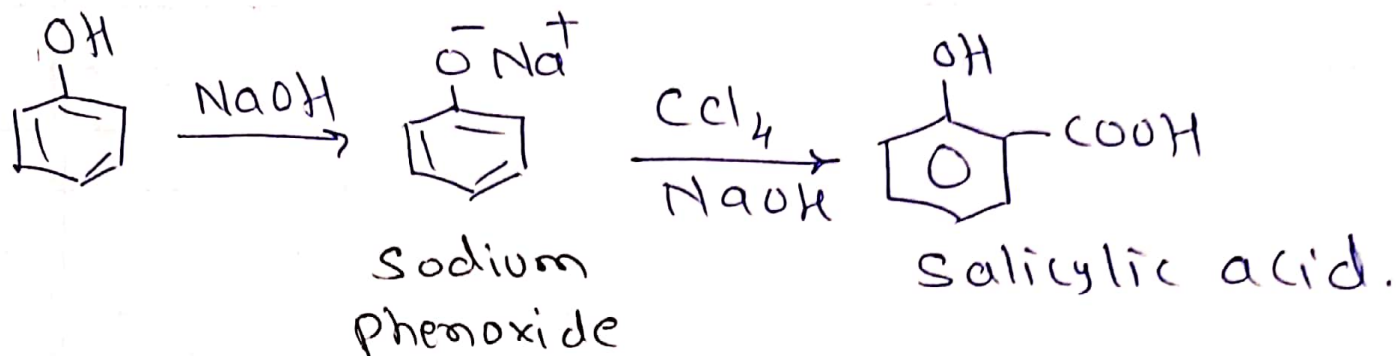 OH
NaOH
O⁻ Na⁺
CCl₄
NaOH
OH
COOH
Sodium
Phenoxide
Salicylic acid.